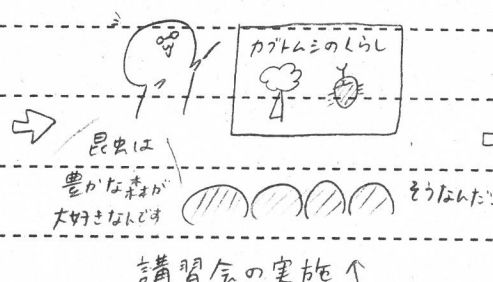 カブトムシのくらし
昆虫は
豊かな森が
大好きなんです
そうなんだ
講習会の実施↑